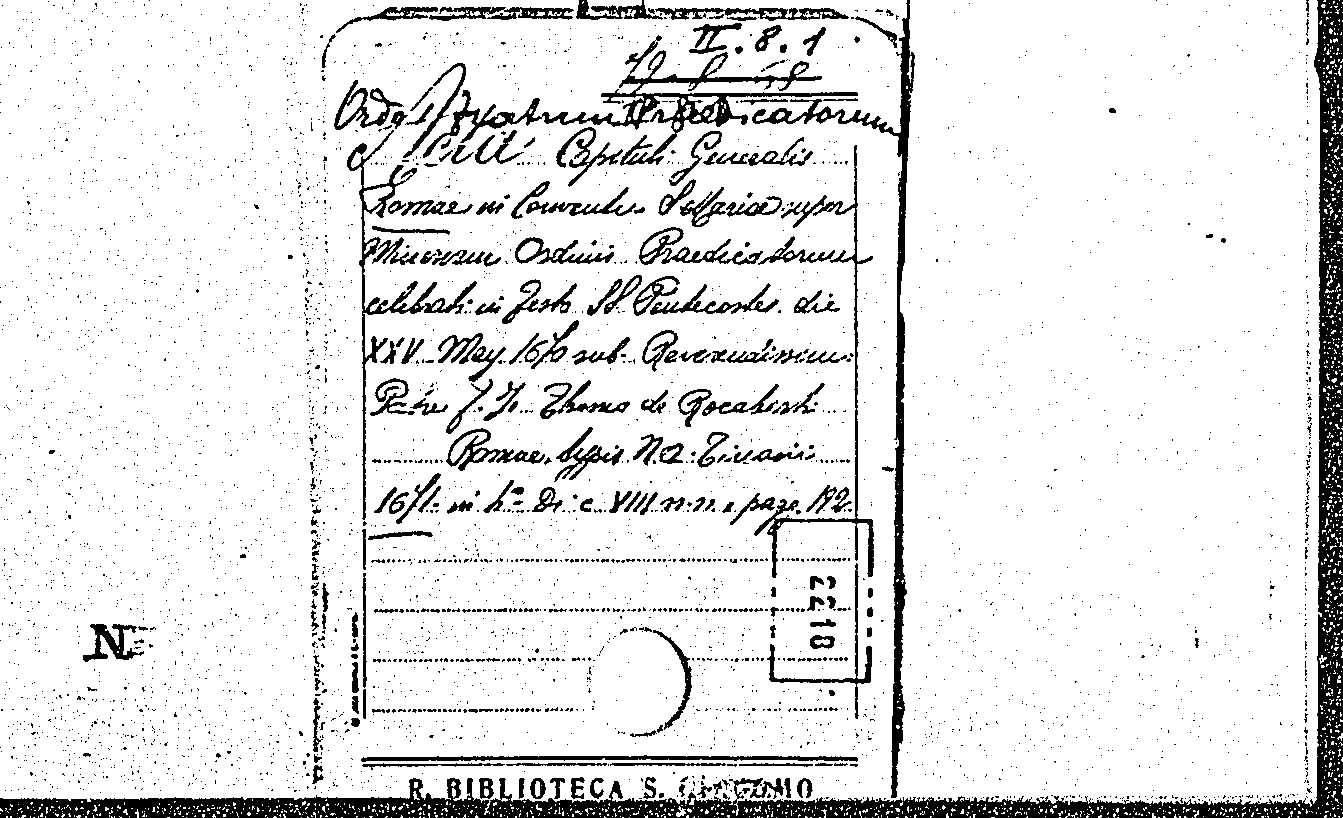 II. 8. 1
Ordo Fratrum Praedicatorum
Acta Capituli Generalis
Romae in Conventu S. Mariae super
Minervam Ordinis Praedicatorum
celebrati in Festo SS Pentecostes die
XXV May 1670 sub Reverendissimo
Patre F. Jo. Thoma de Rocaberti
Romae typis N. A. Tinassi
1671. in h° Di c VIII n.n. e page. 192.
2210
N
R. BIBLIOTECA S. GIACOMO